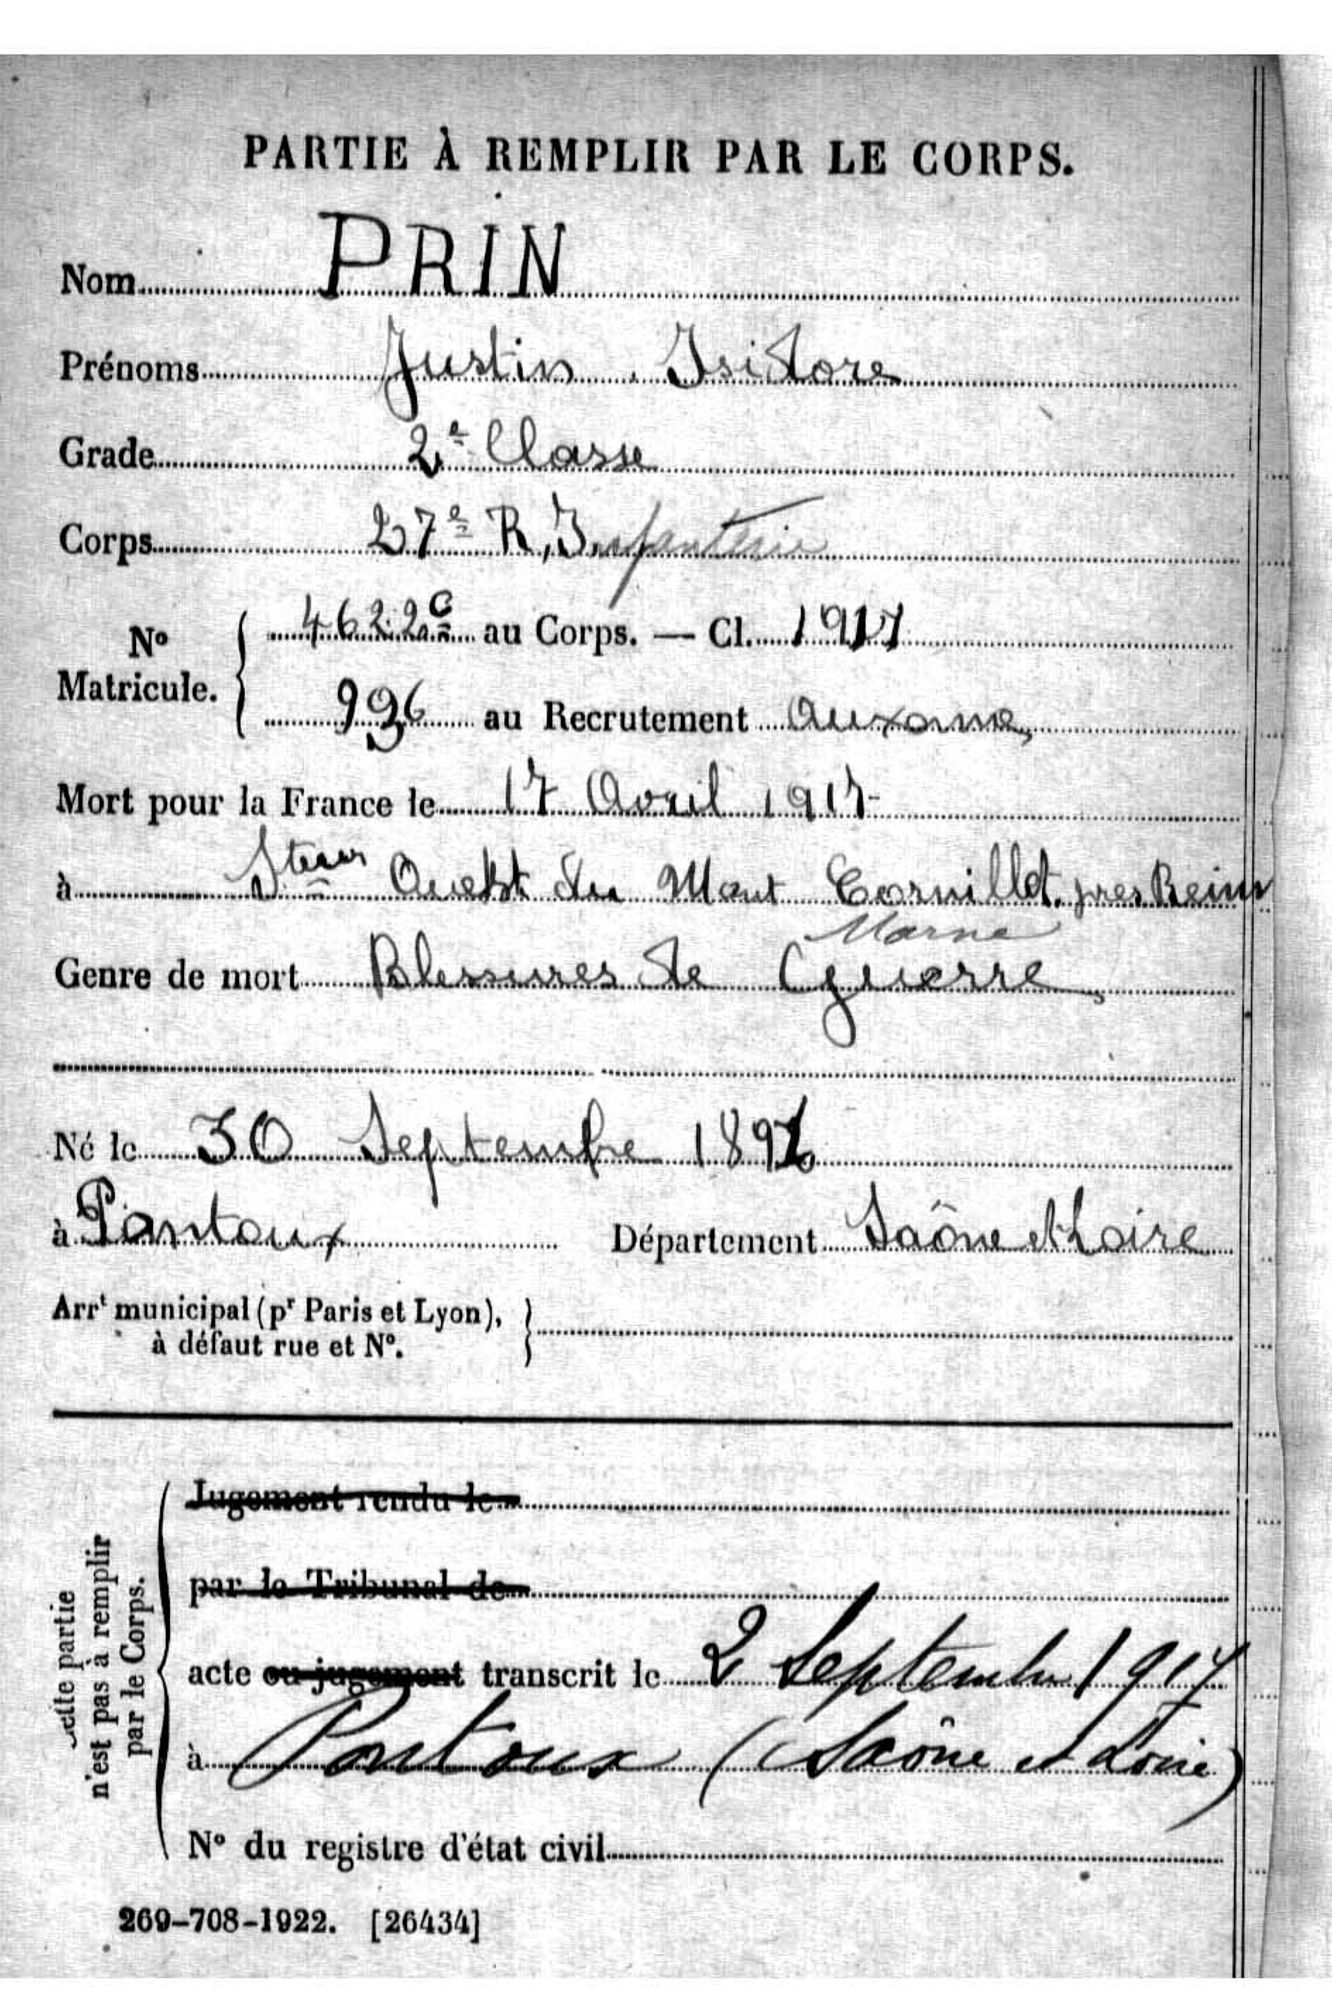 PARTIE À REMPLIR PAR LE CORPS.
Nom PRIN
Prénoms Justin Isidore
Grade 2e Classe
Corps 27e R, Infanterie
No Matricule. 4622 c au Corps. — Cl. 1917
936 au Recrutement Auxonne,
Mort pour la France le 17 Avril 1917
à Steur Ouest du Mont Cornillet. près Reims
Marne
Genre de mort Blessures de Guerre,
Né le 30 Septembre 1896
à Pontoux Département Saône et Loire
Arrt municipal (pr Paris et Lyon),
à défaut rue et No.
Cette partie
n'est pas à remplir
par le Corps.
Jugement rendu le
par le Tribunal de
acte ou jugement transcrit le 2 Septembre 1917
à Pontoux (Saône et Loire)
No du registre d'état civil
269-708-1922. [26434]